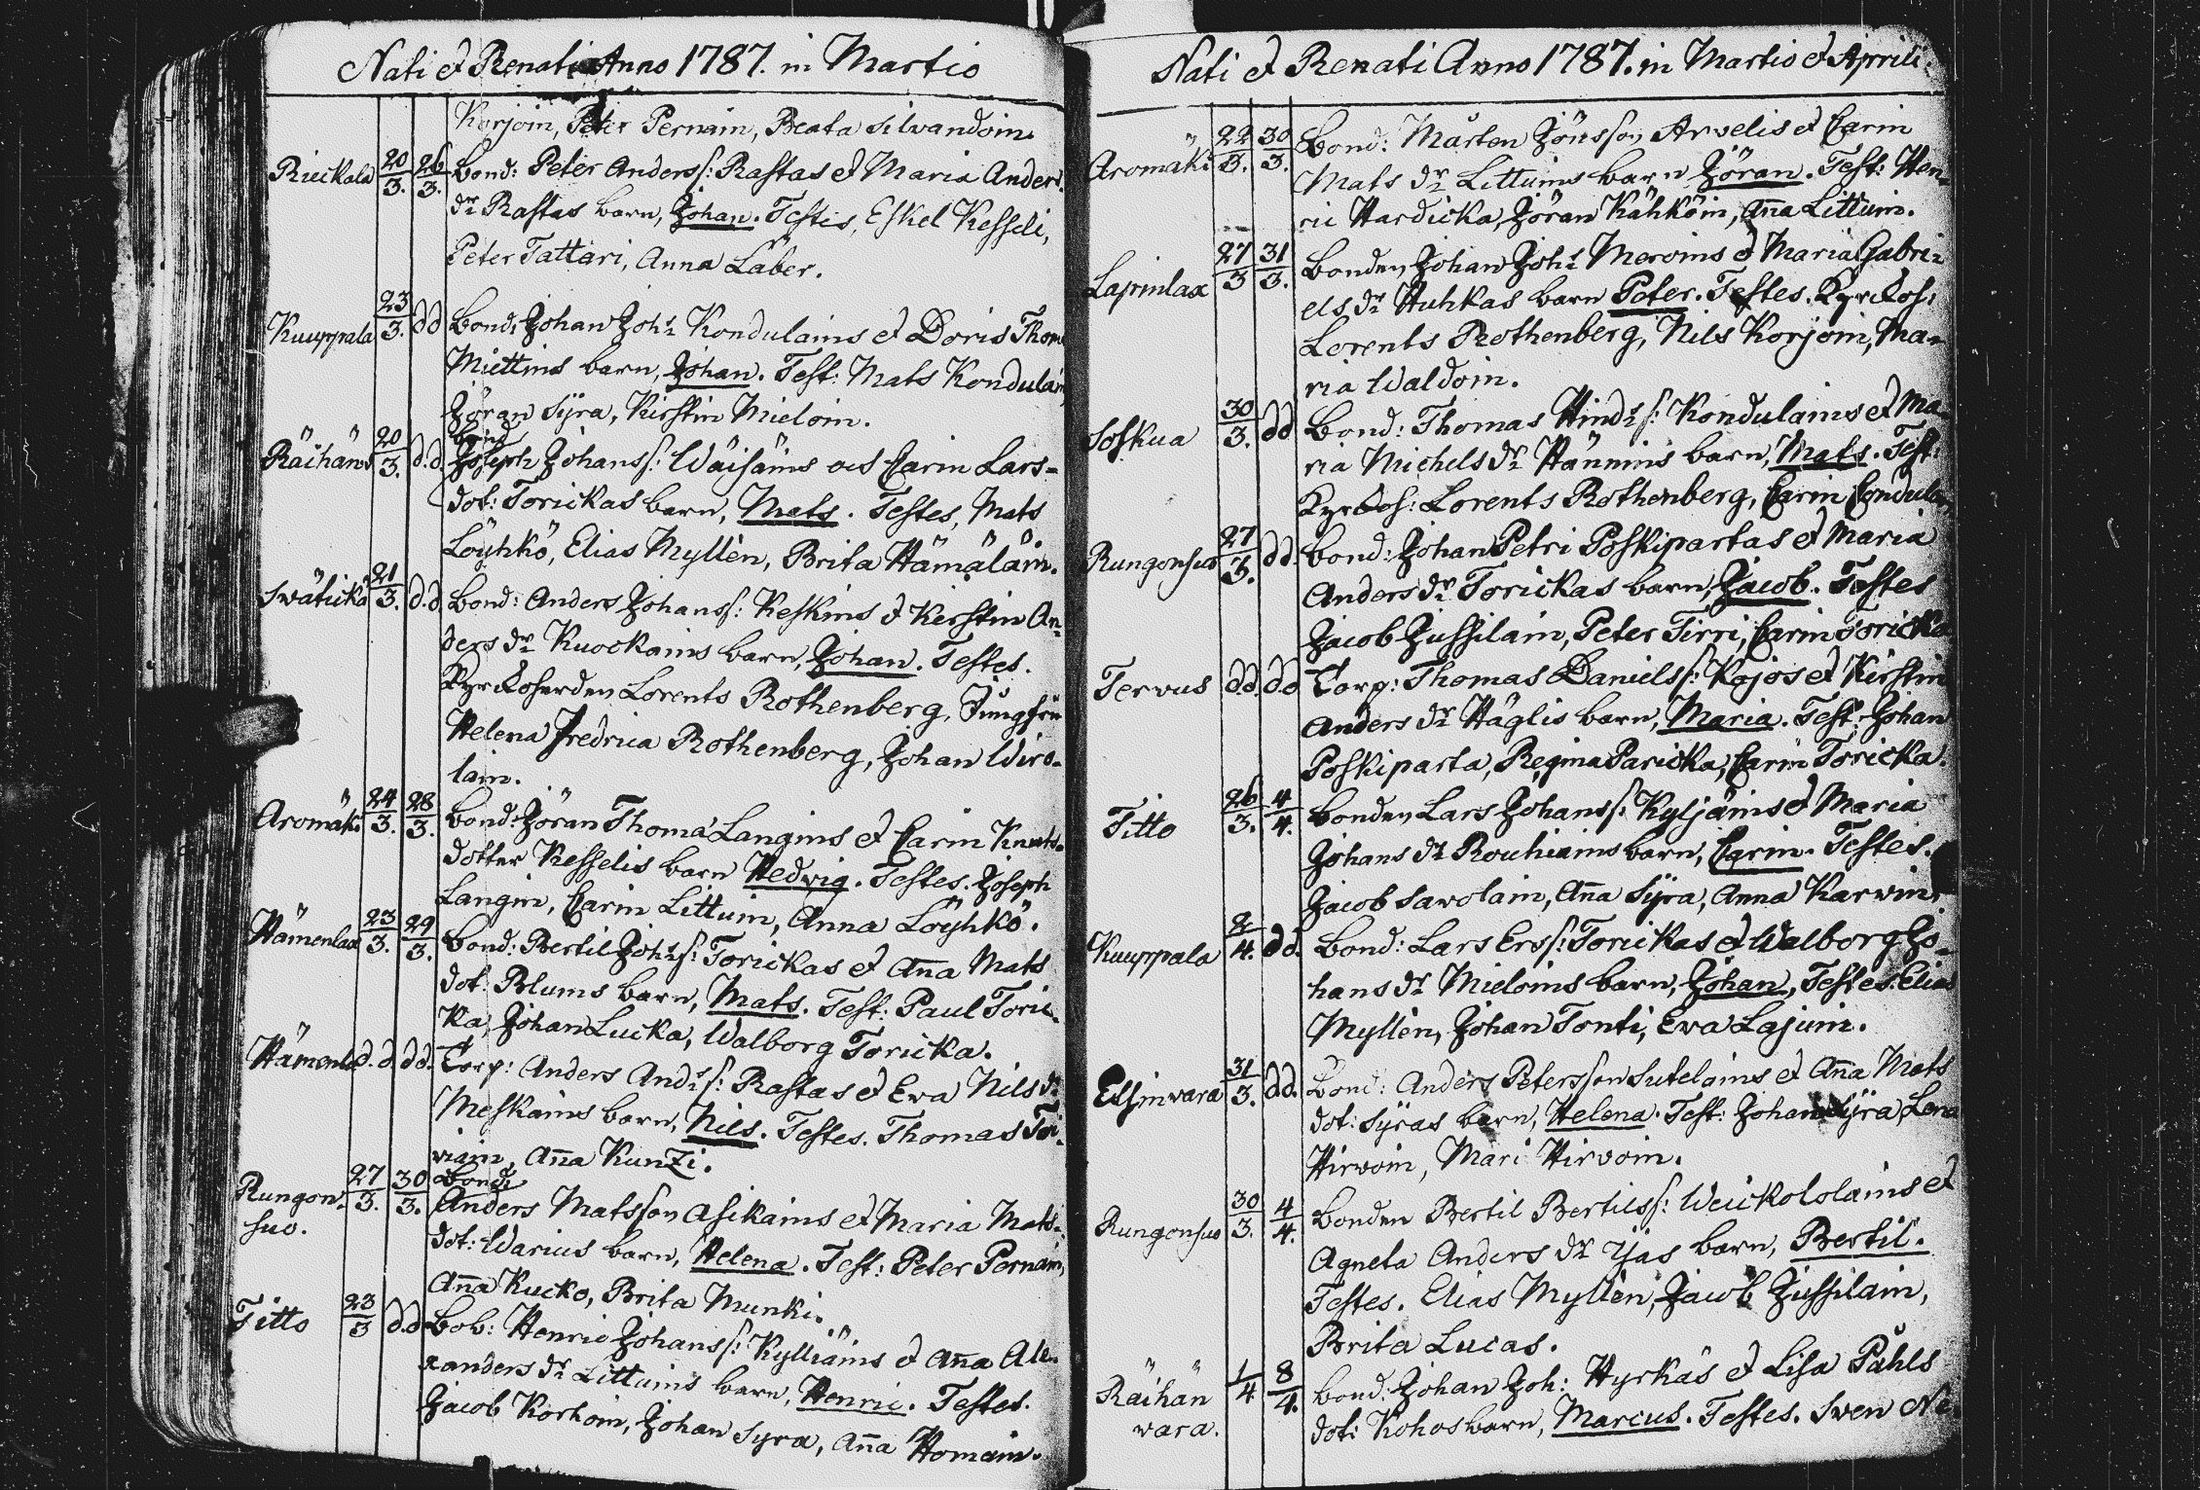 Nati et Renati Anno 1787. in Martio
Korjoin, Peter Pernain, Beata Silvandoin.
Rieckala 20/3. 26/3. Bond: Peter Anderss: Rastas et Maria Anders
dr Rastas barn, Johan. Testes, Eskel Kesseli,
Peter Tattari, Anna Läber.
Kuuppala 23/3. dd Bond: Johan Johs Kondulains et Doris Thom
Miettins barn, Johan. Test: Mats Kondulain
Jöran Syra, Kirstin Mieloin.
Bond
Räihäns 20/3. d.d Joseph Johanss: Wäisäins och Carin Lars-
dot: Torickas barn, Mats. Testes, Mats
Löyhkö, Elias Myllen, Brita Hämäläin.
Swätickä 21/3. d.d. Bond: Anders Johanss: Keskins et Kerstin An-
ders dr Kuockains barn, Johan. Testes.
Kyrkoherden Lorents Rothenberg, Jungfru
Helena Fredrica Rothenberg, Johan Wiro-
lain.
Aromäki 24/3. 28/3. Bond: Jöran Thoma Langins et Carin Knuts-
dotter Kesselis barn Hedvig. Testes. Joseph
Langin, Carin Littuin, Anna Löyhkö.
Hämenlax 23/3. 29/3. Bond: Bertil Johs s: Torickas et Aña Mats
dot: Blums barn, Mats. Test: Paul Toric-
ka, Johan Lucka, Walborg Toricka.
Hämenla d.d dd. Torp: Anders Ands s: Rastas et Ewa Nils dr
Meskains barn, Nils. Testes. Thomas Toi-
viain, Aña Kunzi.
Bond:
Rungon- 27/3. 30/3. Anders Matsson Asikains et Maria Mats-
suo. dot: Warius barn, Helena. Test: Peter Pernain,
Aña Kucko, Brita Munki.
Titto 23/3 d.d Bob: Henric Johanss: Kylliäins et Aña Ale-
xanders dr Littuins barn, Henric. Testes.
Jacob Korhoin, Johan Syra, Aña Homain.
Nati et Renati Anno 1787. in Martio et Aprili.
Aromäki 22/3. 30/3. Bond: Mårten Jönsson Arvelis et Carin
Mats dr Littuins barn Jöran. Test: Hen-
ric Hardicka, Jöran Kähköin, Aña Littuin.
Lapinlax 27/3 31/3. Bonden Johan Johs Meroins et Maria Gabri-
els dr Huhkas barn Peter. Testes. Kyrckoh:
Lorents Rothenberg, Nils Korjoin, Ma-
ria Waldoin.
Soskua 30/3. dd Bond: Thomas Hinds s: Kondulains et Ma-
ria Michels dr Hännins barn, Mats. Test:
Kyrkoh: Lorents Rothenberg, Carin Condulain
Rungonsuo 27/3. dd. Bond: Johan Petri Poskipartas et Maria
Anders dr Torickas barn, Jacob. Testes
Jacob Jussilain, Peter Tirri, Carin Toricka
Tervus dd. dd Torp: Thomas Danielss: Kojos et Kirstin
Anders dr Häglis barn, Maria. Test: Johan
Poskiparta, Regina Paricka, Carin Toricka.
Titto 26/3. 4/4. Bonden Lars Johanss: Kyljäins et Maria
Johans dr Rouhiains barn, Carin. Testes.
Jacob Savolain, Aña Syra, Anna Karvin.
Kuuppala 2/4. dd. Bond: Lars Erss: Torickas et Walborg Jo-
hans dr Mieloins barn, Johan, Testes. Elias
Myllen, Johan Tonti, Ewa Lajuin.
Elsinvara 31/3. dd. Bond: Anders Petersson Sutelains et Aña Mats
dot: Syras barn, Helena. Test: Johan Syra, Lena
Hirvoin, Mari Hirvoin.
Rungonsuo 30/3. 4/4. Bonden Bertil Bertilss: Weickololains et
Agneta Anders dr Yjas barn, Bertil.
Testes. Elias Myllen, Jacob Jussilain,
Brita Lucas.
Räihän 1/4 8/4. Bond: Johan Joh: Hyrkäs et Lisa Påhls
vara. dot: Kohos barn, Marcus. Testes. Sven Ne-